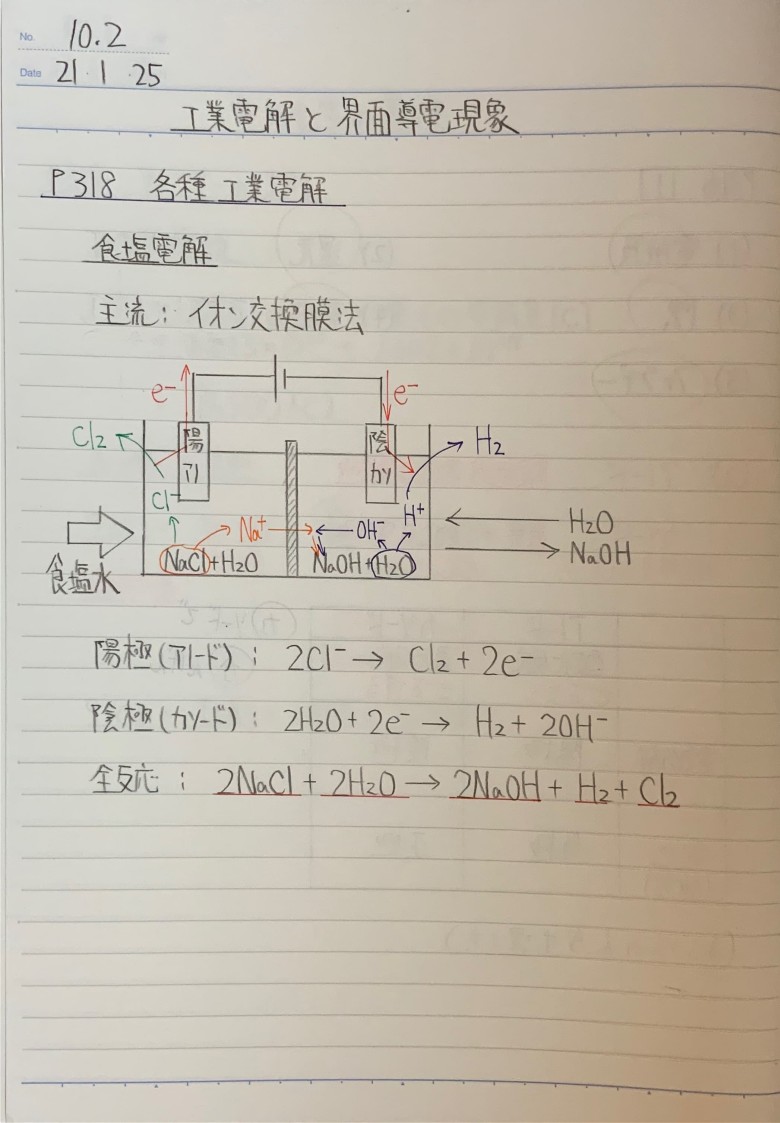 No. 10.2
Date 21・1・25
工業電解と界面導電現象
P318 各種工業電解
食塩電解
主流：イオン交換膜法
e⁻ e⁻
Cl2 陽 陰 H2
アノ カソ
Cl⁻ H⁺
Na⁺ OH⁻ H2O
NaCl+H2O NaOH+H2O NaOH
食塩水
陽極(アノード)：2Cl⁻→ Cl2+2e⁻
陰極(カソード)：2H2O+2e⁻→ H2+2OH⁻
全反応：2NaCl+2H2O→2NaOH+H2+Cl2